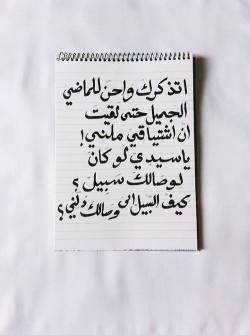 اتذكرك واحن للماضي
الجميل حتى لقيت
ان اشتياقي ملني!
ياسيدي لو كان
لوصالك سبيل؟
كيف السبيل الى وصالك دلني؟